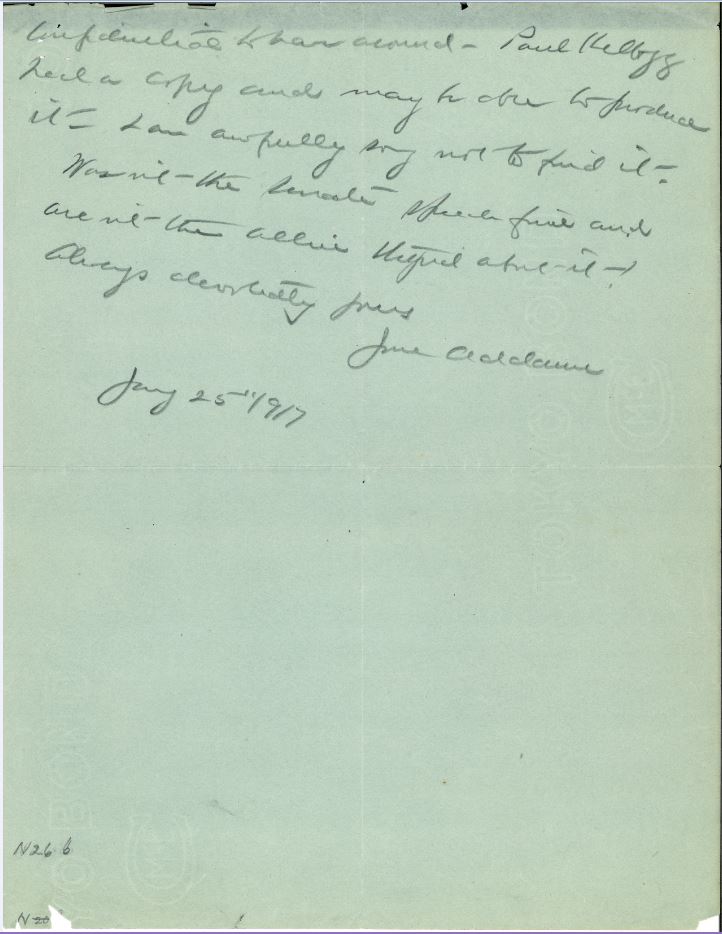 confidential to have around – Paul Kellogg
had a copy and may be able to produce
it – I am awfully sorry not to find it –
Was n't the Senate speech fine and
are n't the allies stupid about it –!
Always devotedly yours
Jane Addams
Jany 25" 1917
TOKYO BOND
N26 b
N-20